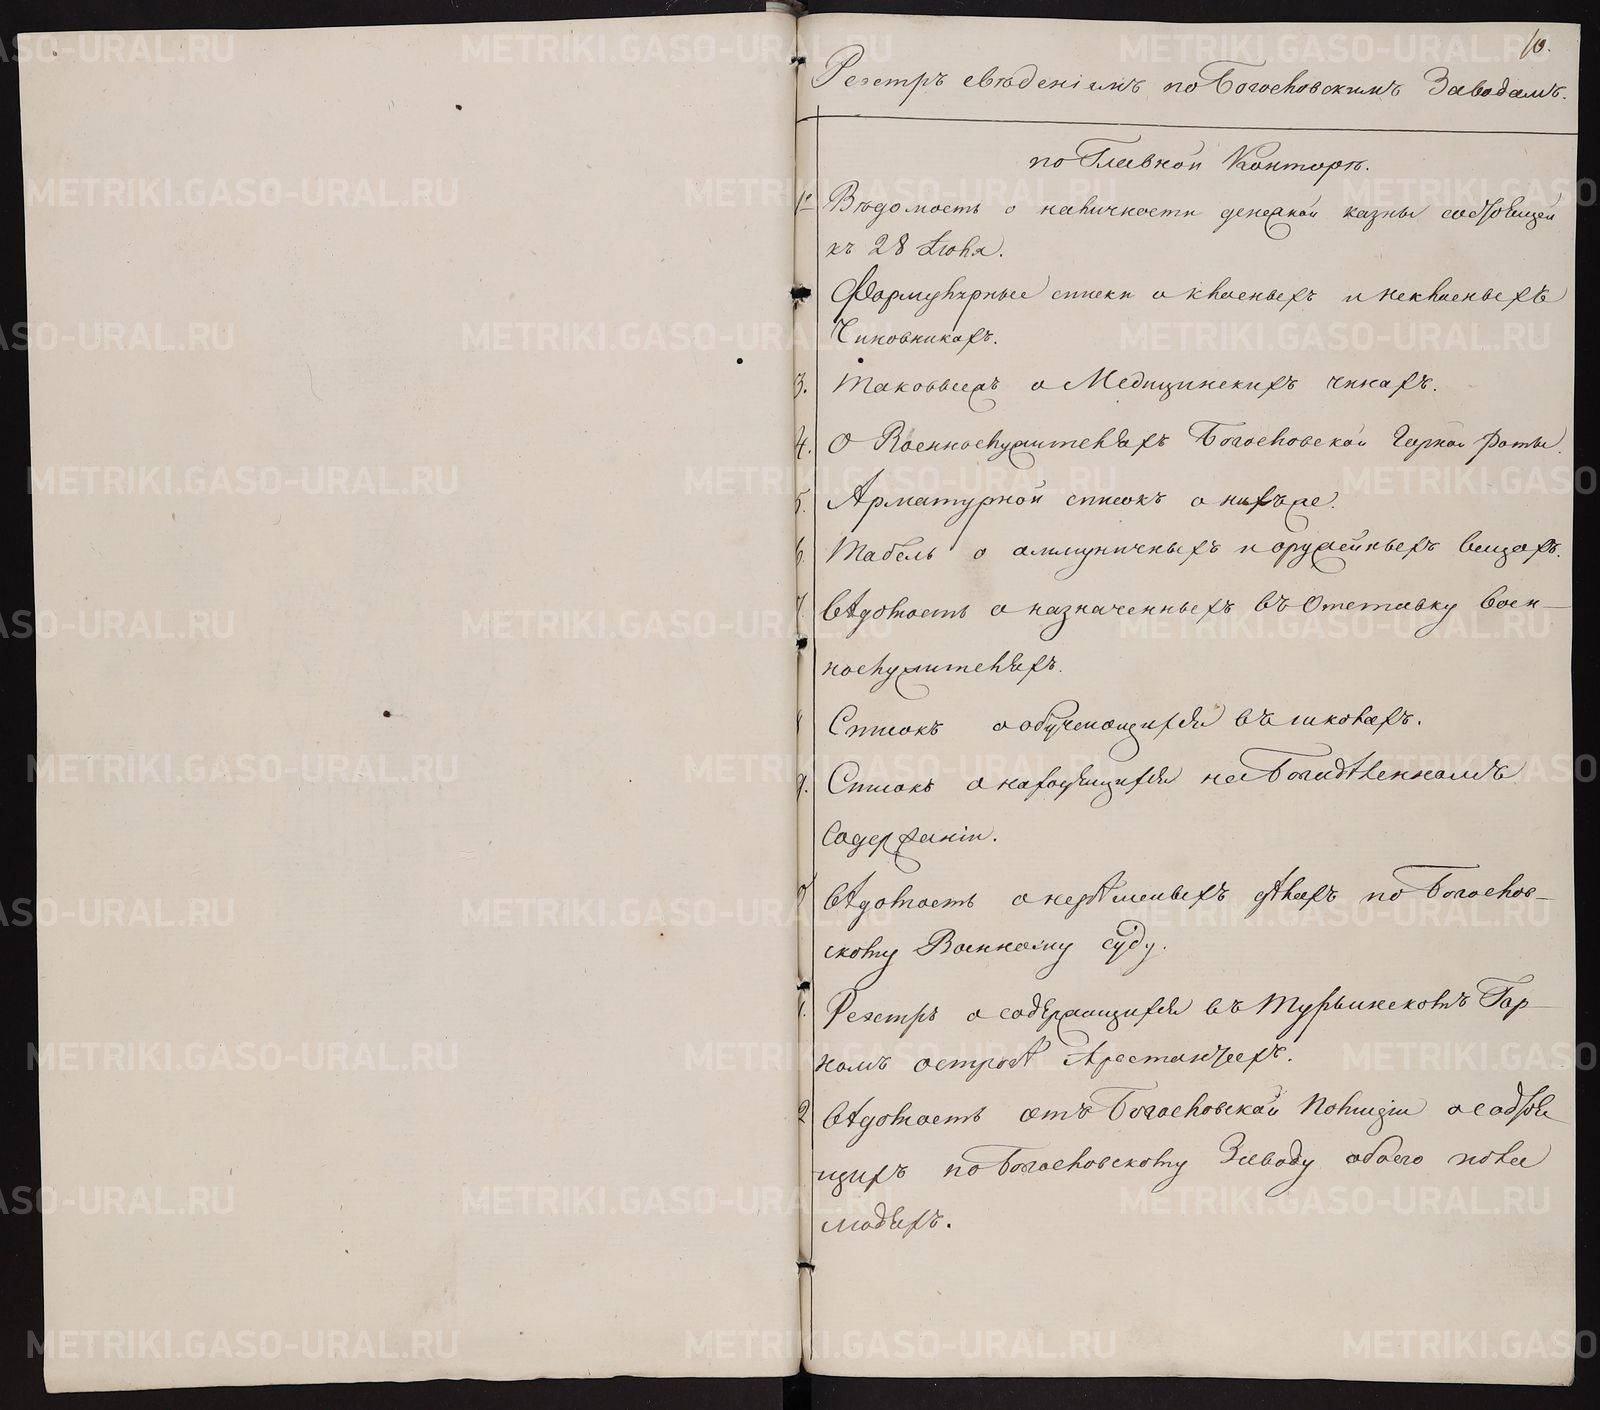 10.
Реэстръ свѣденіямъ по Богословскимъ Заводамъ.
по Главной Конторѣ.
1е Вѣдомость о наличности денежной казны состоящей
къ 28 Іюля.
Формулярные списки о класныхъ и некласныхъ
Чиновникахъ.
3. Таковыежъ о Медицинскихъ чинахъ.
4. О Военнослужителяхъ Богословской Горной роты.
5. Арматурной списокъ о нихъже.
6. Табель о аммуничныхъ и оружейныхъ вещахъ.
7. Вѣдомость о назначенныхъ въ Отставку воен-
нослужителяхъ.
8 Списокъ о обучающихся въ школахъ.
9. Списокъ о находящихся на Богадѣленномъ
Содержаніи.
0 Вѣдомость о нерѣшеныхъ дѣлахъ по Богослов-
скому Военному суду.
1. Реэстръ о содержащихся въ Турьинскомъ Гор-
номъ острогѣ Арестантахъ.
2 Вѣдомость отъ Богословской Полиціи о состоя
щихъ по Богословскому Заводу обоего пола
людяхъ.
METRIKI.GASO-URAL.RU